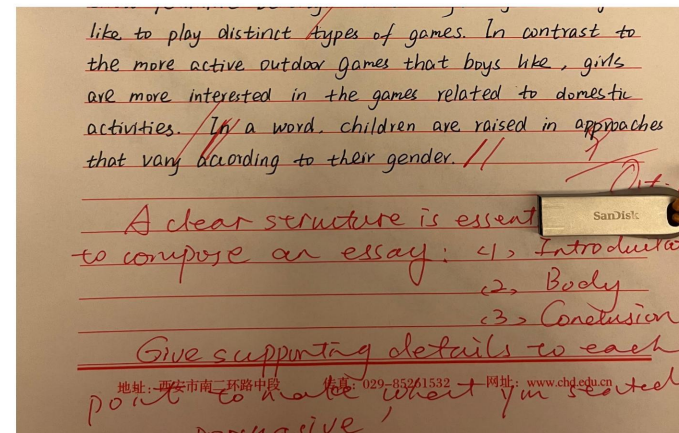 like to play distinct types of games. In contrast to
the more active outdoor games that boys like, girls
are more interested in the games related to domestic
activities. In a word, children are raised in approaches
that vary according to their gender.
SanDisk
A clear structure is essent
to compose an essay: (1) Introduct
(2) Body
(3) Conclusion
Give supporting details to each
地址:西安市南二环路中段 传真:029-85261532 网址:www.chd.edu.cn
point to make what you stated